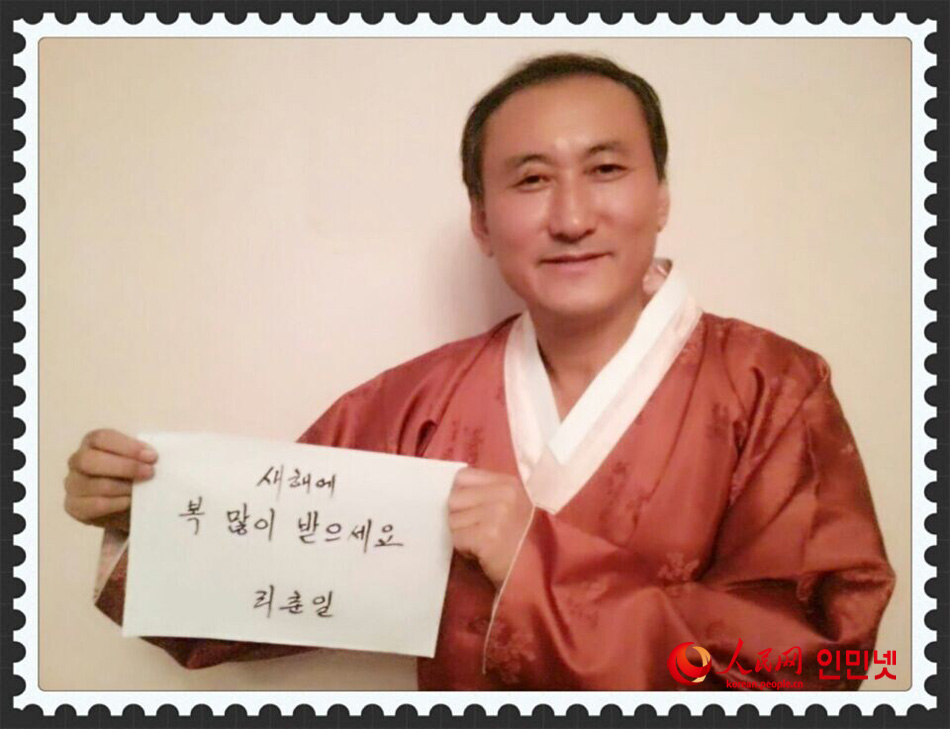 새해에
복 많이 받으세요
리춘일
人民网 인민넷
korea.people.cn